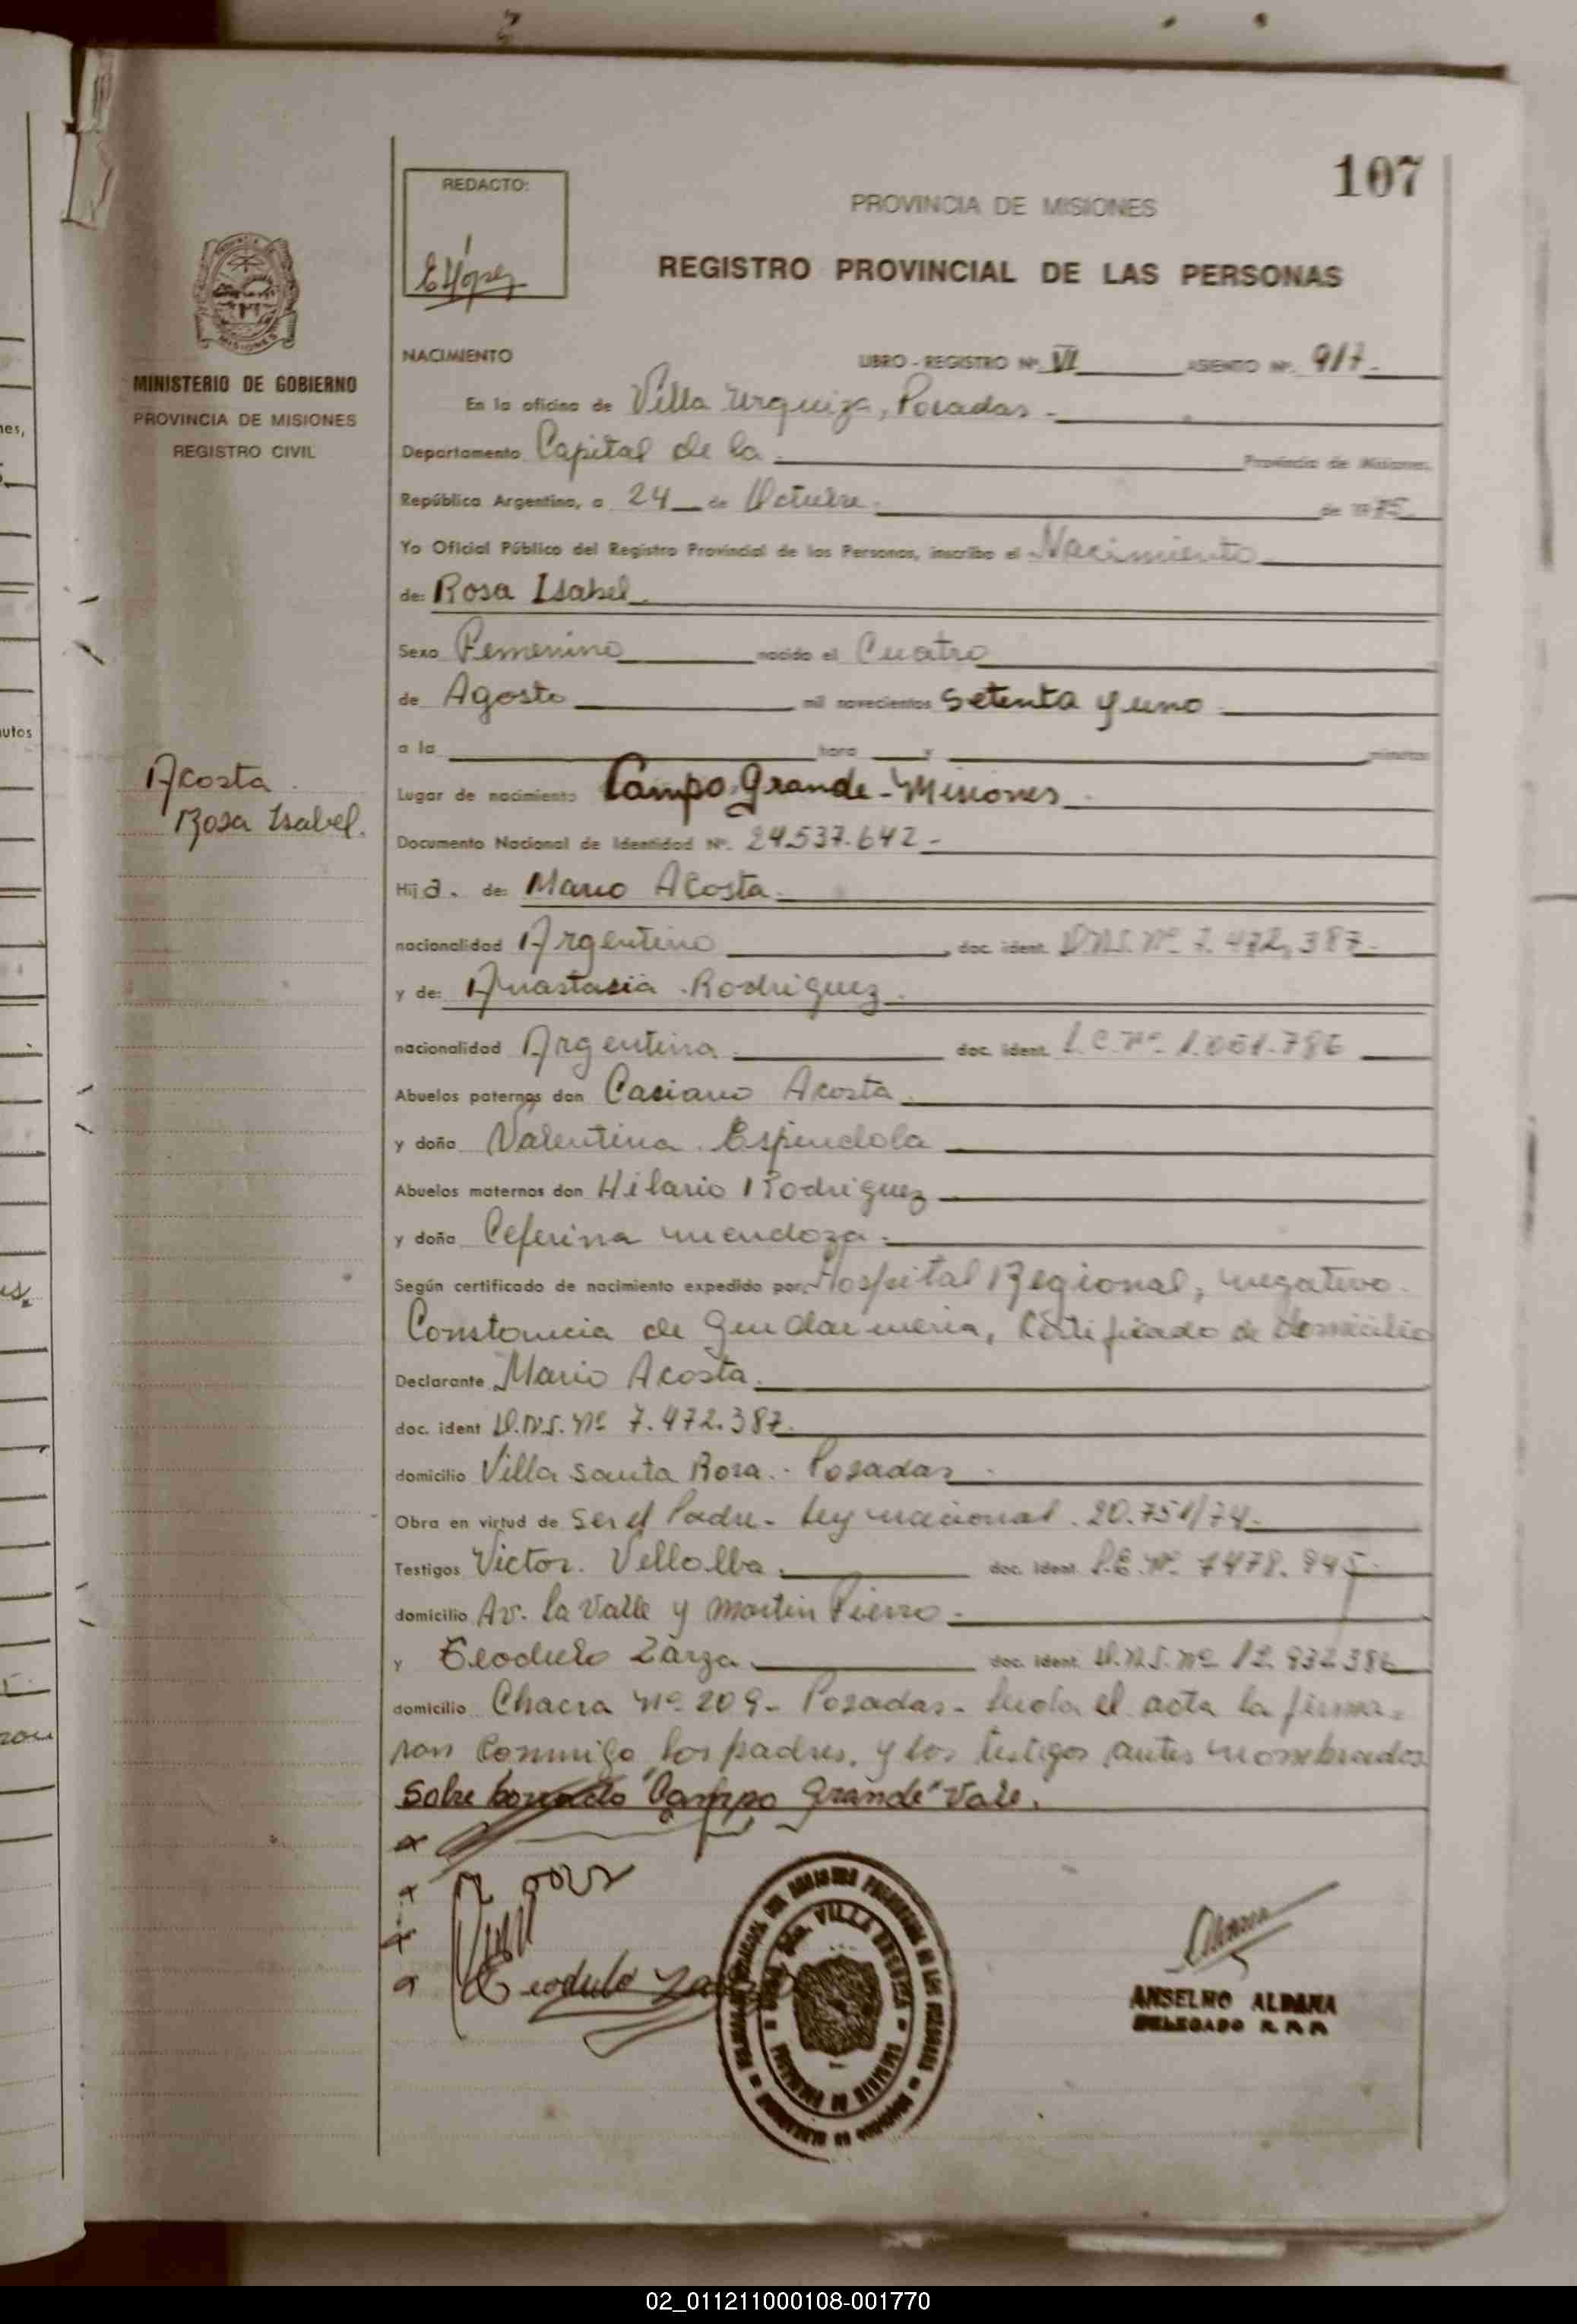 107
REDACTO:
ELópez
PROVINCIA DE MISIONES
REGISTRO PROVINCIAL DE LAS PERSONAS
MINISTERIO DE GOBIERNO
PROVINCIA DE MISIONES
REGISTRO CIVIL
NACIMIENTO LIBRO - REGISTRO Nº VI ASIENTO Nº. 917-
En la oficina de Villa Urquiza, Posadas -
Departamento Capital de la Provincia de Misiones,
República Argentina, a 24 de Octubre de 1975
Yo Oficial Público del Registro Provincial de las Personas, inscribo el Nacimiento
de: Rosa Isabel
Sexo Femenino nacido el Cuatro
de Agosto mil novecientos setenta y uno
a la hora y minutos
Acosta
Rosa Isabel.
Lugar de nacimiento Campo Grande - Misiones
Documento Nacional de Identidad Nº. 24.537.642 -
Hij a. de: Mario Acosta
nacionalidad Argentino doc. ident. D.N.I. Nº 7.472.387-
y de: Anastasia Rodriguez
nacionalidad Argentina doc. ident. L.C. Nº 1.061.786
Abuelos paternos don Casiano Acosta
y doña Valentina Espindola
Abuelos maternos don Hilario Rodriguez
y doña Ceferina Mendoza
Según certificado de nacimiento expedido por: Hospital Regional, negativo.
Constancia de Gendarmeria, Certificado de domicilio
Declarante Mario Acosta
doc. ident D.N.I. Nº 7.472.387.
domicilio Villa Santa Rosa. - Posadas
Obra en virtud de ser el Padre - Ley nacional. 20.751/74-
Testigos Victor. Vellalba doc. ident. L.E. Nº 7478.945
domicilio Av. La Valle y Martin Fierro -
y Teodulo Zarza doc. ident. D.N.I. Nº 12.932.386
domicilio Chacra Nº 209 - Posadas - Leida el acta la firma-
ron conmigo los padres. y los testigos antes nombrados
Sobre borrado "Campo Grande" Vale.
Teodulo Za
VILLA URQUIZA
PROVINCIA DE MISIONES
ANSELMO ALDANA
DELEGADO R. P. P.
02_011211000108-001770